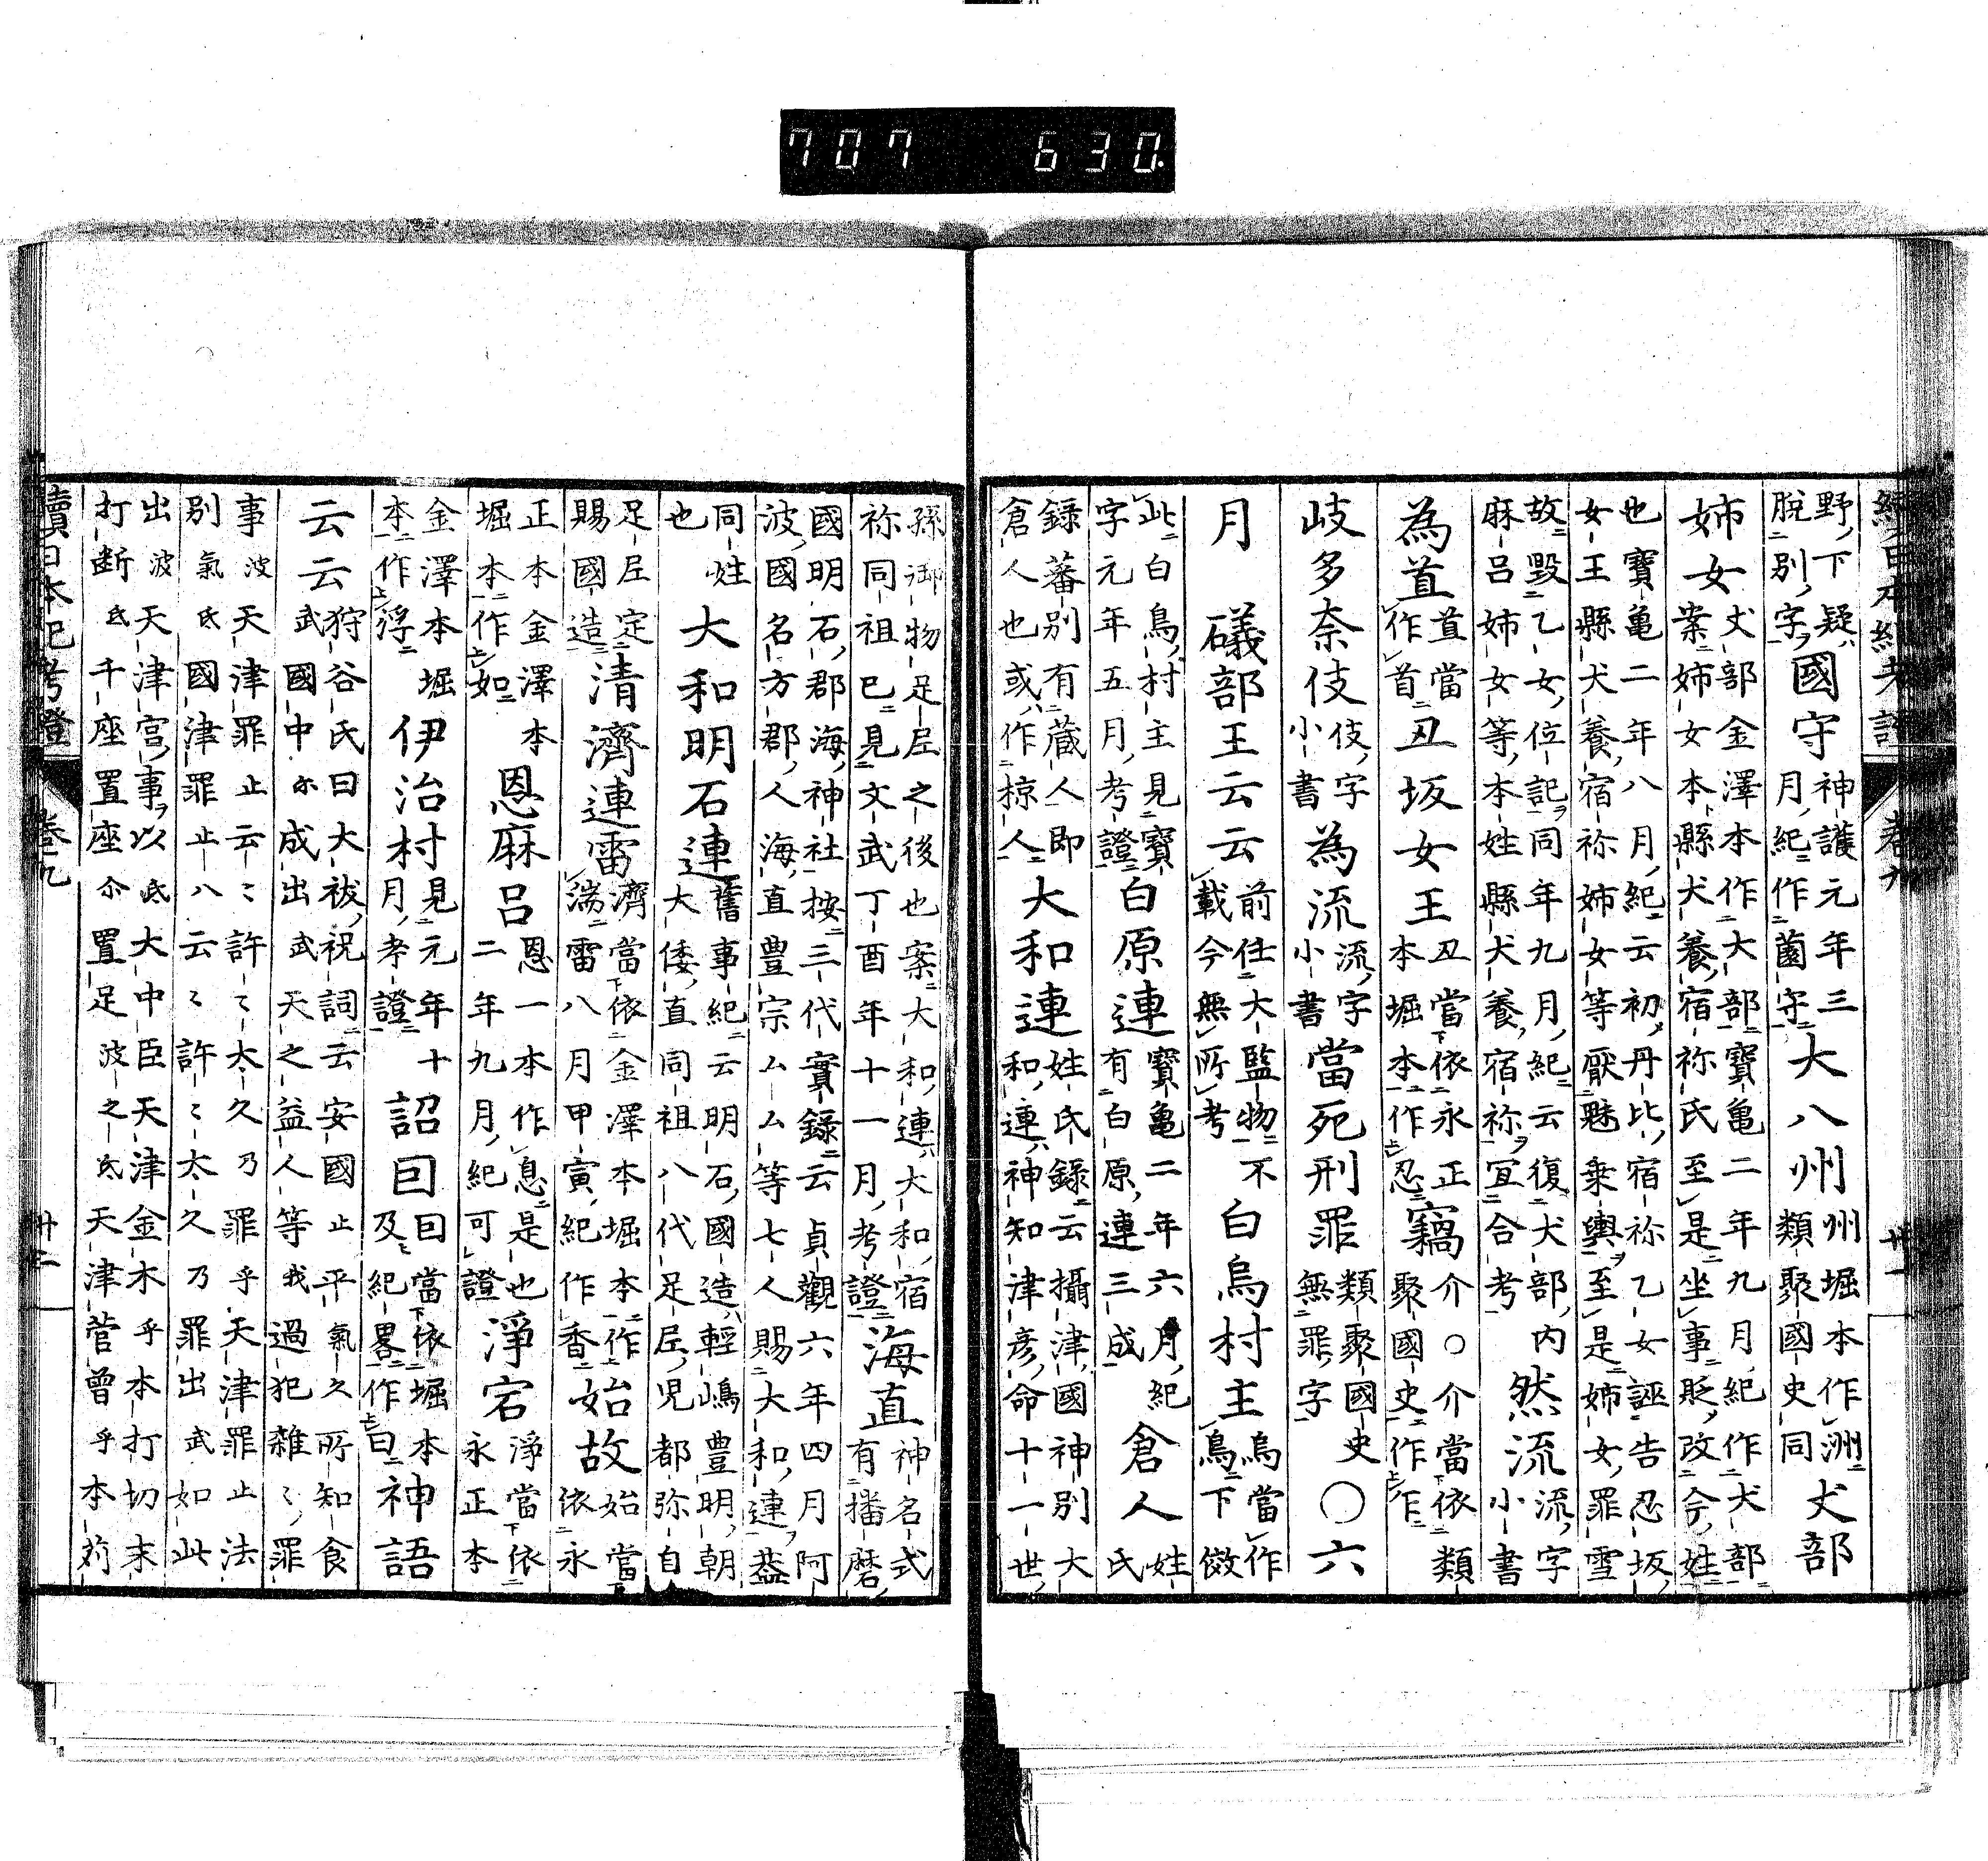 707 630.
續日本紀考證 卷九 廿一
野下疑脫別字國守神護元年三月紀作菌守大八州州堀本作洲類聚國史同丈部
姉女丈部金澤本作大部寶亀二年九月紀作犬部案姉女本縣犬養宿祢氏至是坐事貶改今姓
也寶亀二年八月紀云初丹比宿祢乙女誣告忍坂女王縣犬養宿祢姉女等厭魅乗輿至是姉女罪雪
故毀乙女位記同年九月紀云復犬部内麻呂姉女等本姓縣犬養宿祢宜合考然流流字小書
為直直當作首丑坂女王丑當依永正本堀本作忍竊介○介當依類聚國史作乍
岐多奈伎伎字小書為流流字小書當死刑罪類聚國史無罪字○六
月 礒部王云云前任大監物不載今無所考白烏村主烏當作鳥下傚
此白鳥村主見寶字元年五月考證白原連寶亀二年六月紀有白原連三成倉人姓氏
錄蕃別有蔵人即倉人也或作椋人大和連姓氏錄云攝津國神別大和連神知津彦命十一世
孫御物足尼之後也案大和連大和宿祢同祖已見文武丁酉年十一月考證海直神名式有播磨
國明石郡海神社按三代實錄云貞觀六年四月阿波國名方郡人海直豊宗ムムム等七人賜大和連葢
同姓也大和明石連舊事紀云明石國造輕嶋豊明朝大倭直同祖八代足尼兒都弥自
足尼定賜國造清濟連雷濟當依金澤本堀本作湍雷八月甲寅紀作香始故始當依永
正本金澤本堀本作如恩麻呂恩一本作息是也二年九月紀可證淨宕淨當依永正本
金澤本堀本作浮伊治村見元年十月考證詔囙囙當依堀本及紀畧作曰神語
云云狩谷氏曰大祓祝詞云安國止平氣久所知食武國中尓成出武天之益人等我過犯雜〻罪
事波天津罪止云〻許〻太久乃罪乎天津罪止法別氣氐國津罪止八云〻許〻太久乃罪出武如此
出波天津宮事以氐大中臣天津金木乎本打切末打断氐千座置座尓置足波之氐天津菅曾乎本苅
續日本紀考證 卷九 廿二